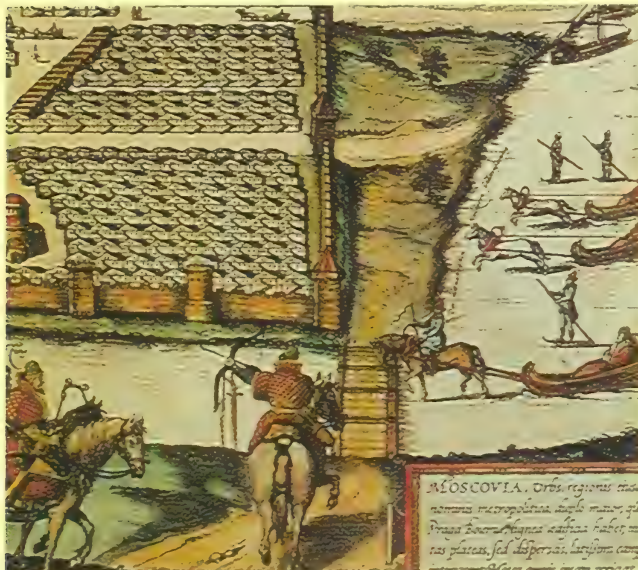 MOSCOVIA. Urbs regionis eius
nominis metropolitica, duplo maior, quā
Praga Boemiæ, lignea ædificia habet, m
tas plateas, sed dispersas, latissimi camp